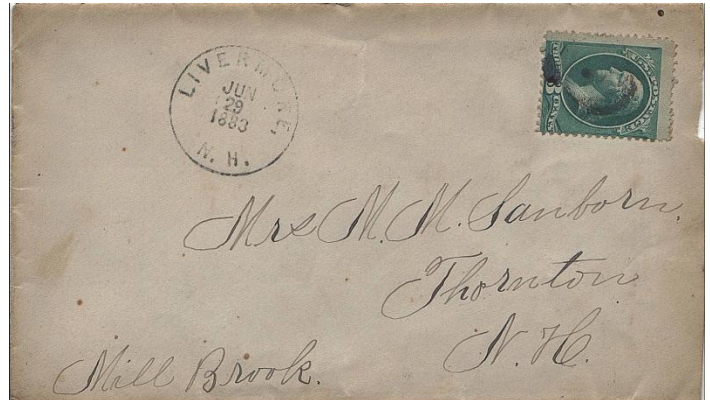 LIVERMORE,
JUN
29
1883
N. H.
Mrs M. M. Sanborn.
Thornton
N. H.
Mill Brook.